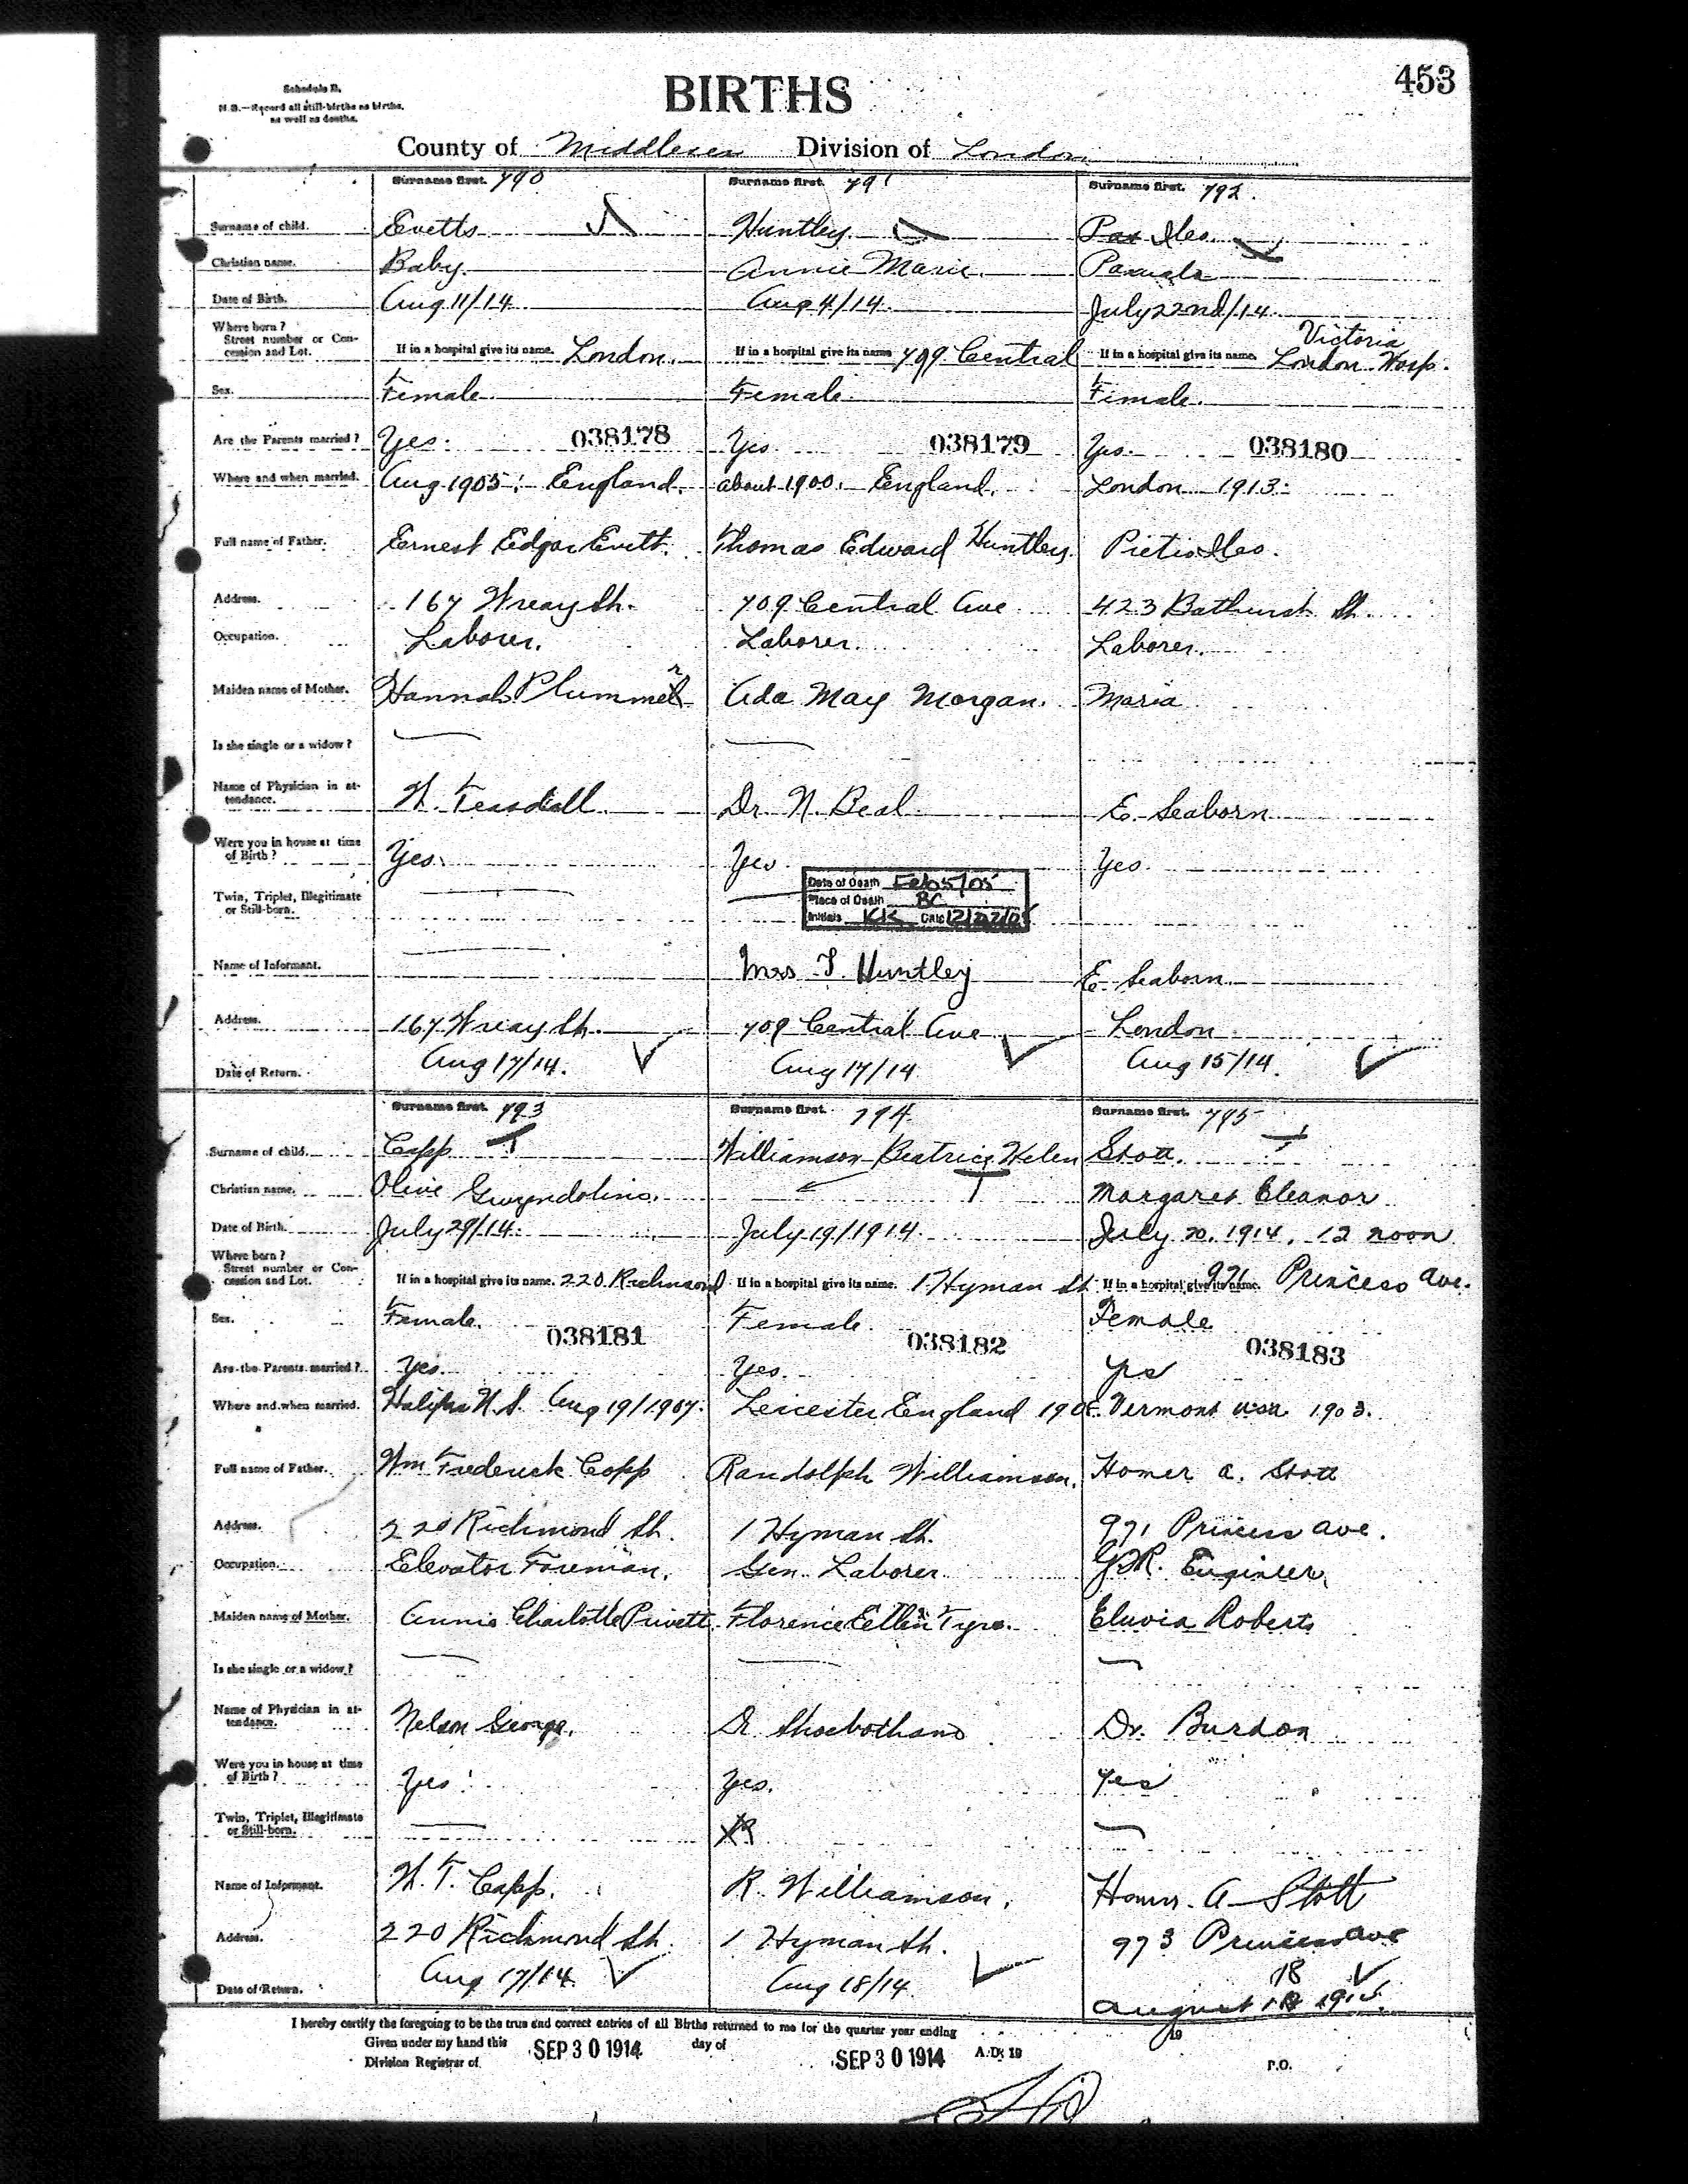 453
Schedule B.
N.B.—Record all still-births as births,
as well as deaths.
BIRTHS
County of Middlesex Division of London
Surname first. 790 Surname first. 791 Surname first. 792.
Surname of child. Evetts Huntley Iles.
Christian name. Baby. Annie Marie.
Date of Birth. Aug 11/14 Aug 4/14. July 22nd/14.
Where born?
Street number or Concession and Lot. If in a hospital give its name. London. If in a hospital give its name 709 Central If in a hospital give its name. Victoria London Hosp.
Sex. Female. Female Female.
Are the Parents married? Yes. 038178 Yes 038179 Yes. 038180
Where and when married. Aug 1905. England. about 1900. England. London 1913.
Full name of Father. Ernest Edgar Evett. Thomas Edward Huntley. Iles.
Address. 167 Wreay St. 709 Central Ave 423 Bathurst St.
Occupation. Laborer. Laborer. Laborer.
Maiden name of Mother. Hannah Plummer Ada May Morgan. Maria
Is she single or a widow? — —
Name of Physician in attendance. W. Teasdall Dr. N. Beal E. Seaborn
Were you in house at time of Birth? Yes. Yes. Yes.
Date of Death Feb 5/05
Place of Death BC
Initials KK Date
Twin, Triplet, Illegitimate or Still-born. — —
Name of Informant. — Mrs T. Huntley E. Seaborn
Address. 167 Wreay St. 709 Central Ave London
Date of Return. Aug 17/14. Aug 17/14 Aug 15/14.
Surname first. 793 Surname first. 794. Surname first. 795
Surname of child. Copp Williamson Beatrice Helen Stott.
Christian name. Olive Gwendoline. Margaret Eleanor
Date of Birth. July 29/14. July 19/1914. July 20, 1914, 12 noon
Where born?
Street number or Concession and Lot. If in a hospital give its name. 220 Richmond If in a hospital give its name. 1 Hyman St If in a hospital give its name. 971 Princess Ave.
Sex. Female. Female. Female
038181 038182 038183
Are the Parents married? Yes. Yes. Yes
Where and when married. Halifax N.S. Aug 19/1907. Leicester England Vermont USA 1903.
Full name of Father. Wm Frederick Copp Randolph Williamson. Homer A. Stott
Address. 220 Richmond St. 1 Hyman St. 971 Princess Ave.
Occupation. Elevator Foreman. Gen. Laborer Engineer.
Maiden name of Mother. Annie Charlotte Privett Florence Ellen Tyre. Eluvia Roberts
Is she single or a widow? — — —
Name of Physician in attendance. Nelson George. Dr Shoebotham Dr. Burdon
Were you in house at time of Birth? Yes Yes. Yes
Twin, Triplet, Illegitimate or Still-born. — —
Name of Informant. W. F. Copp. R. Williamson. Homer A Stott
Address. 220 Richmond St. 1 Hyman St. 973 Princess Ave
Date of Return. Aug 17/14. Aug 18/14 August 18 1914.
I hereby certify the foregoing to be the true and correct entries of all Births returned to me for the quarter year ending 19
Given under my hand this SEP 30 1914 day of SEP 30 1914 A.D. 19
Division Registrar of P.O.